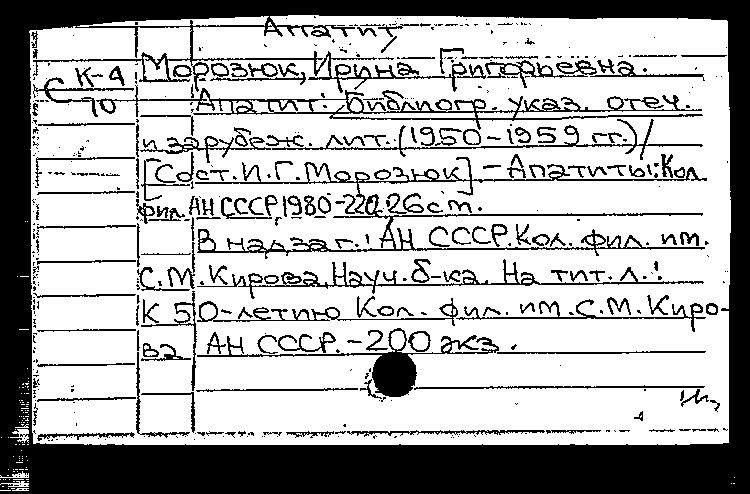 Апатит
С К-4
70
Морозюк, Ирина Григорьевна.
Апатит: Библиогр. указ. отеч.
и зарубеж. лит. (1950-1959 гг.)/
[Сост. И.Г. Морозюк]. - Апатиты: Кол.
фил. АН СССР, 1980-220 26 см.
В надзаг.: АН СССР. Кол. фил. им.
С.М. Кирова, Науч. б-ка. На тит. л.:
К 50-летию Кол. фил. им. С.М. Киро-
ва АН СССР. - 200 экз.